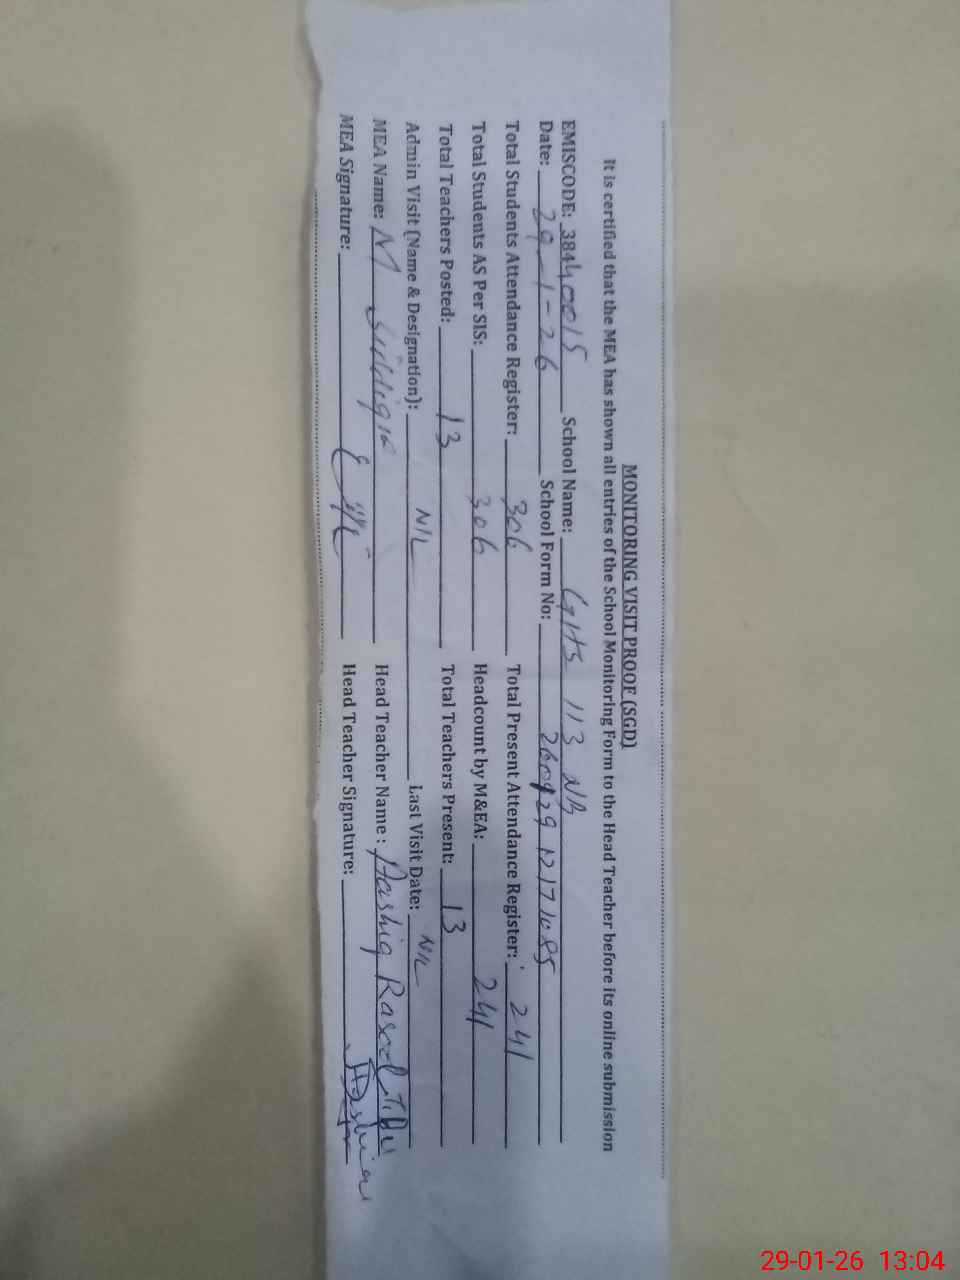 MONITORING VISIT PROOF (SGD)
It is certified that the MEA has shown all entries of the School Monitoring Form to the Head Teacher before its online submission
EMISCODE: 38440015 School Name: GHS 113 NB
Date: 29-1-26 School Form No:
Total Students Attendance Register: 306 Total Present Attendance Register: 241
Total Students AS Per SIS: 306 Headcount by M&EA: 241
Total Teachers Posted: 13 Total Teachers Present: 13
Admin Visit (Name & Designation): NIL Last Visit Date: NIL
MEA Name: M Siddique Head Teacher Name : Aashiq Rasool
MEA Signature: Head Teacher Signature:
29-01-26 13:04